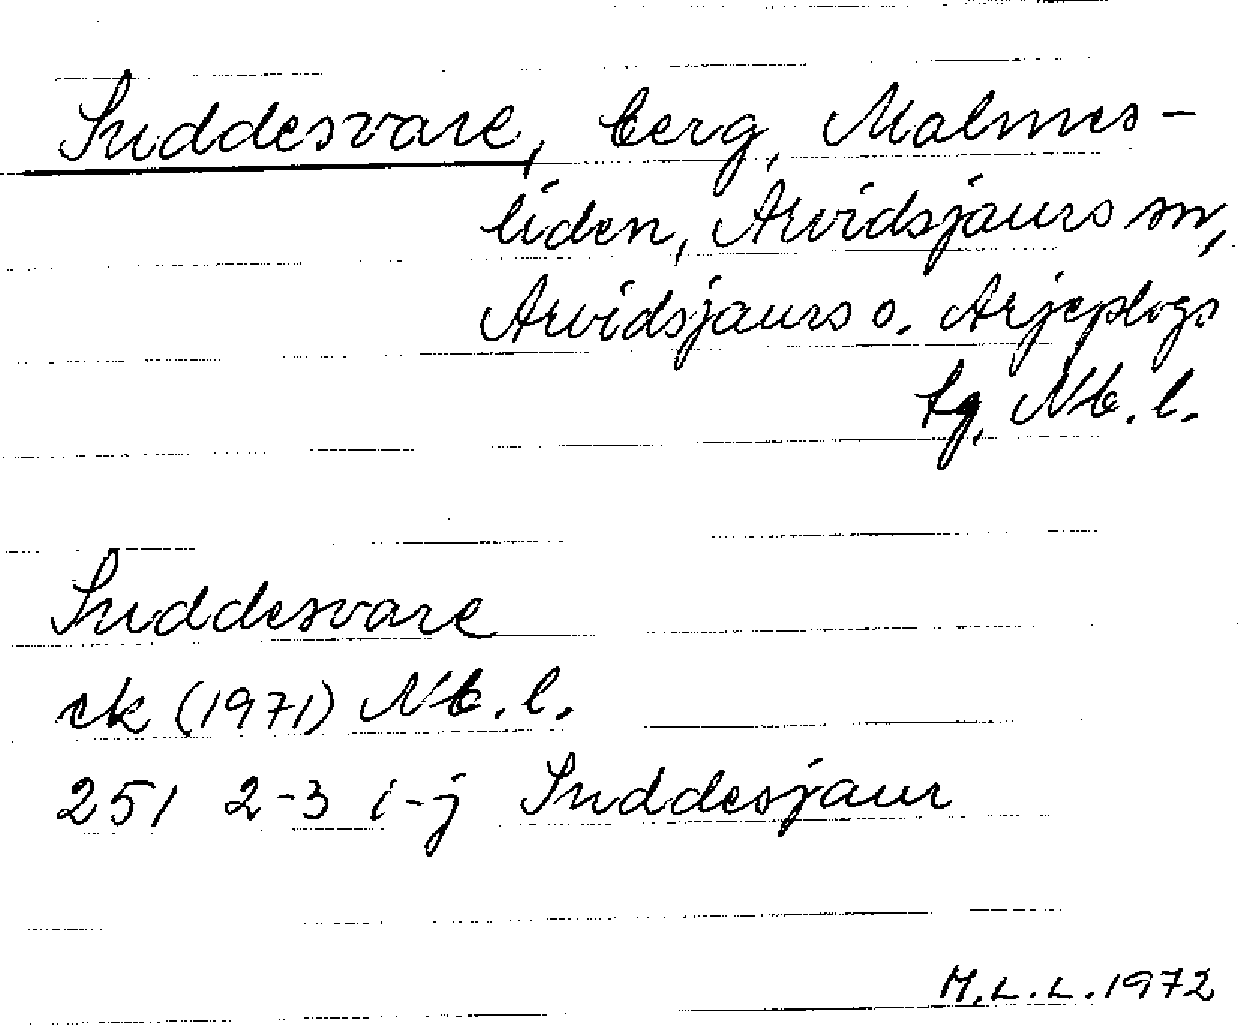 Suddesvare, berg, Malmes-
liden, Arvidsjaurs sn,
Arvidsjaurs o. Arjeplogs
tg, Nb. l.
Suddesvare
ek (1971) Nb. l.
251 2-3 i-j Suddesjaur
M.L.L. 1972